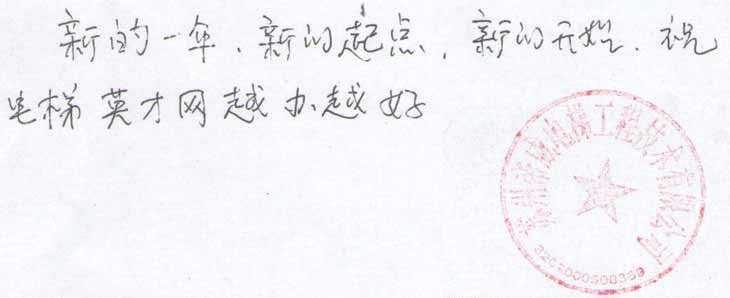 新的一年、新的起点、新的开始、祝
电梯英才网越办越好
电梯工程技术有限公司